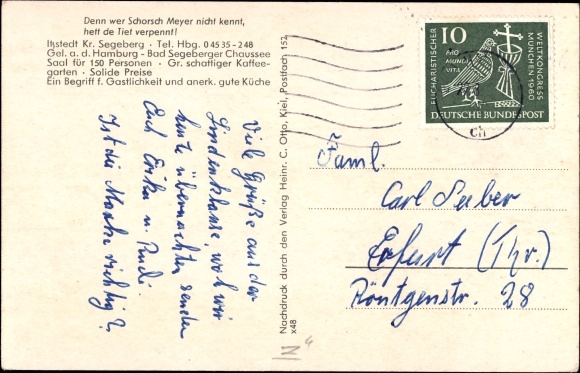 Denn wer Schorsch Meyer nicht kennt,
hett de Tiet verpennt!
Itzstedt Kr. Segeberg · Tel. Hbg. 0 45 35 - 2 48
Gel. a. d. Hamburg - Bad Segeberger Chaussee
Saal für 150 Personen · Gr. schattiger Kaffee-
garten · Solide Preise
Ein Begriff f. Gastlichkeit und anerk. gute Küche
Viele Grüße aus der
Lindenklause, wo wir
heute übernachten
Euch Erika u. Rudi.
Ist die Marke richtig?
Nachdruck durch den Verlag Heinr. C. Otto, Kiel, Postfach 152
x48
10
EUCHARISTISCHER
PRO
MUNDI
VITA
WELTKONGRESS
MÜNCHEN 1960
DEUTSCHE BUNDESPOST
Faml.
Carl Seeber
Erfurt (Thr.)
Röntgenstr. 28